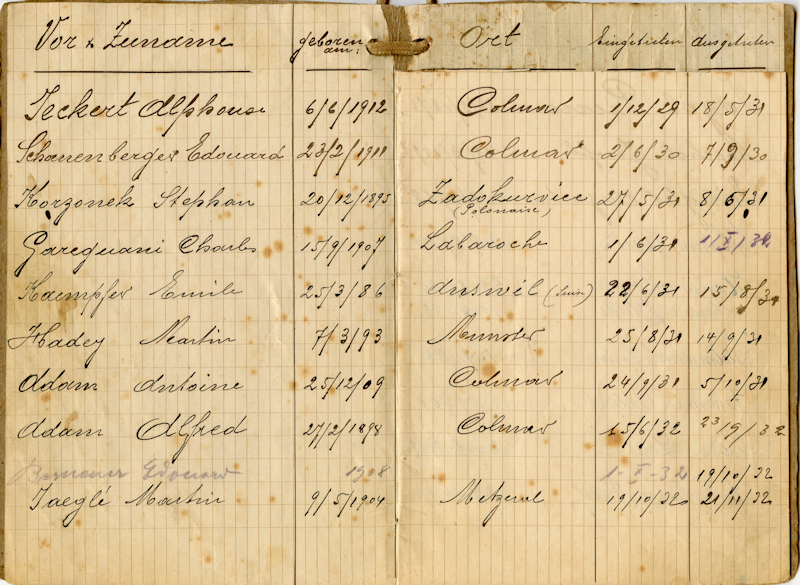 Vor & Zuname geboren am: Ort Eingetreten Ausgetreten
Jeckert Alphonse 6/6/1912 Colmar 1/12/29 18/5/31
Schœnenberger Edouard 23/2/1911 Colmar 2/6/30 7/9/30
Korzonek Stephan 20/12/1895 27/5/31 8/6/31
(Polonaise)
Garcguani Charles 15/9/1907 Labaroche 1/6/31 1/X/32
Kaempfer Emile 25/3/86 22/6/31 15/8/31
Hadey Martin 7/3/93 Munster 25/8/31 14/9/31
Adam Antoine 25/12/09 Colmar 24/9/31 5/10/31
Adam Alfred 27/2/1898 Colmar 15/6/32 23/9/32
Edouard 1908 1-X-32 19/10/32
Jaeglé Martin 9/5/1904 Metzeral 19/10/32 21/11/32